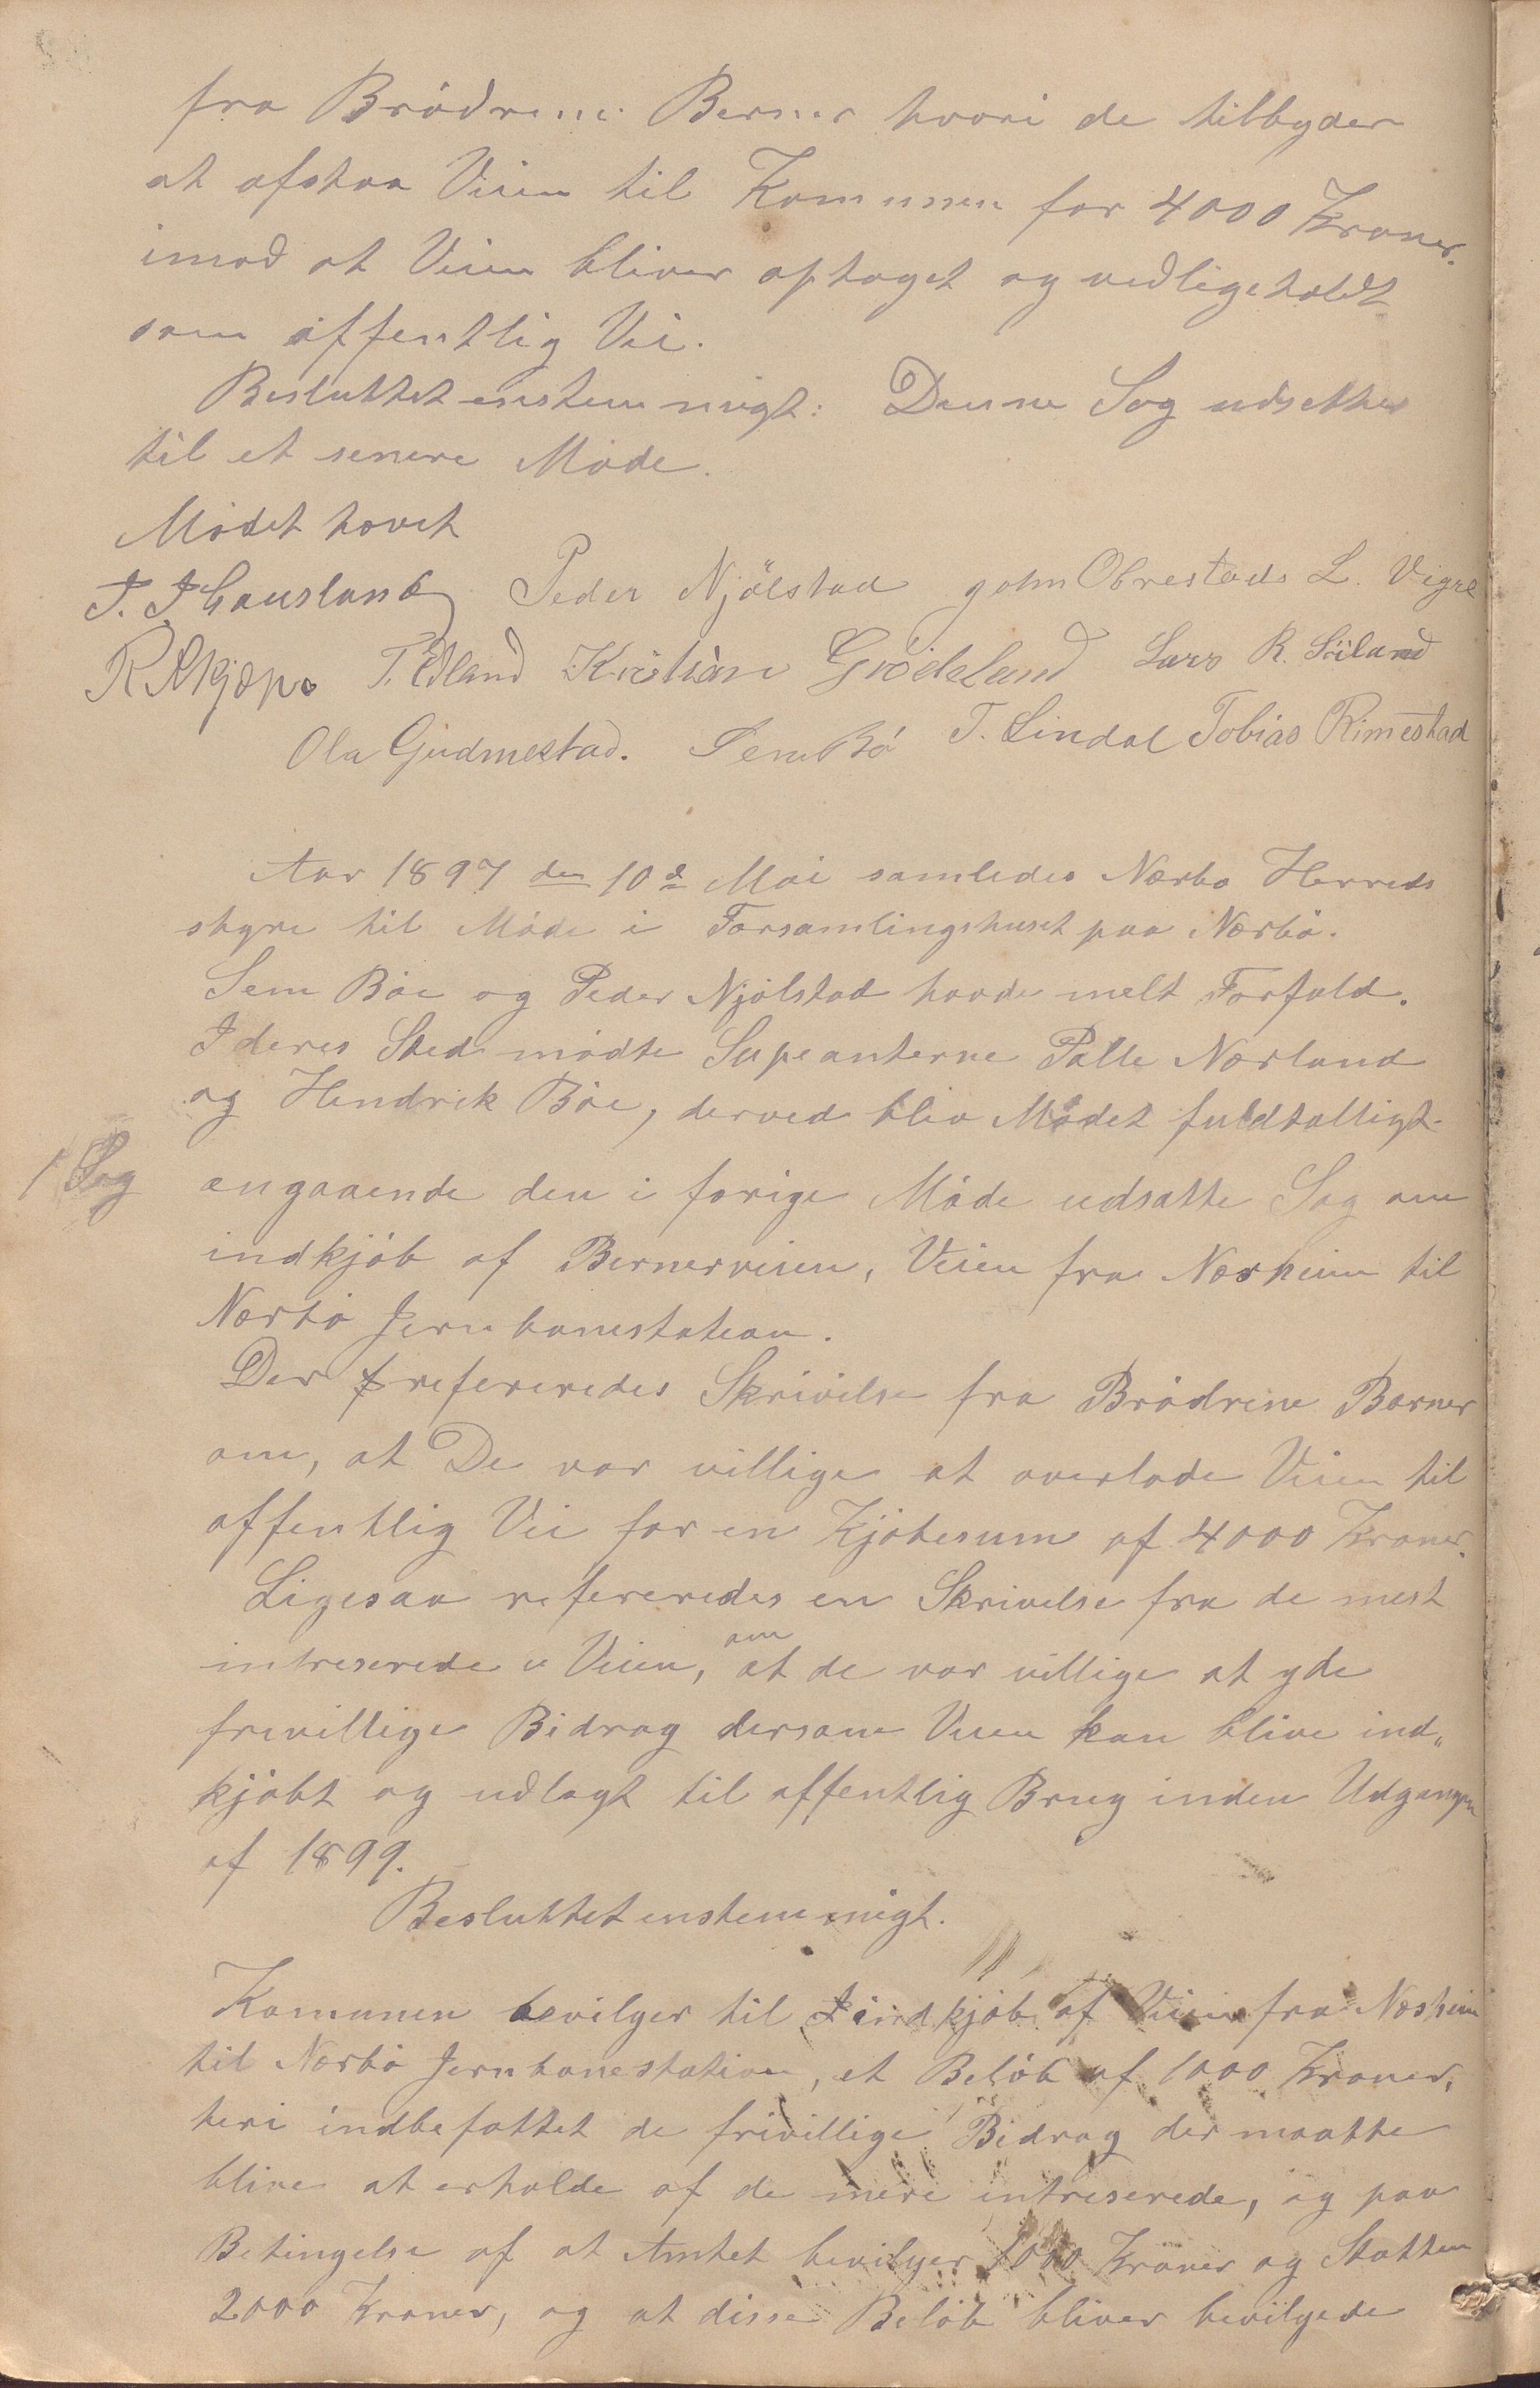 fra Brödrene Berner hvori de tilbyder
at afstaa Veien til Komunen for 4000 Kroner.
imod at Veien bliver optaget og vedligeholdt
som offentlig Vei.
Besluttet enstemmigt: Denne Sag udsættes
til et senere Möde.
Mödet hævet
J. J Gausland Peder Njölstad John Obrestads L. Vigre
R Skjæpe T. Edland Kristian Grödeland Lars R. Söiland
Ola Gudmestad. Sem Bö T. Lindal Tobias Rimestad
Aar 1897 den 10de Mai samledes Nærbø Herreds
styre til Möde i Forsamlingshuset paa Nærbö.
Sem Böe og Peder Njölstad havde mælt Forfald.
I deres Sted mödte Supeanterne Palle Nærland
og Hendrik Böe, derved blev Mödet fuldtalligt.
1 Sag angaaende den i forige Möde udsatte Sag om
indkjöb af Bernerveien, Veien fra Næsheim til
Nærbö Jernbanestation.
Der refereredes Skrivelse fra Brödrene Berner
om, at De var villige at overlade Veien til
offentlig Vei for en Kjöbesum af 4000 Kroner.
Ligesaa refereredes en Skrivelse fra de mest
intreserede i Veien, om at de var villige at yde
frivillige Bidrag dersom Veien kan blive ind„
kjöbt og udlagt til offentlig Brug inden Udgangen
af 1899.
Besluttet enstemmigt.
Komunen bevilger til indkjöb af Veien fra Næsheim
til Nærbö Jernbanestation, et Belöb af 1000 Kroner,
heri indbefattet de frivillige Bidrag der maatte
blive at erholde af de mere intreserede, og paa
Betingelse af at Amtet bevilger 1000 Kroner og Statten
2000 Kroner, og at disse Belöb bliver bevilgede